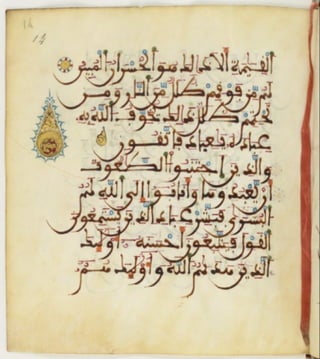 14
القيمة الا ذلك هو الخسران المبين
لهم من فوقهم ظلل من النار ومن
تحتهم ظلل ذلك يخوف الله به
عباده يعباد فاتقون
والذين اجتنبوا الطغوت
ان يعبدوها وانابوا الى الله لهم
البشرى فبشر عباد الذين يستمعون
القول فيتبعون احسنه اولئك
الذين هديهم الله واولئك هم